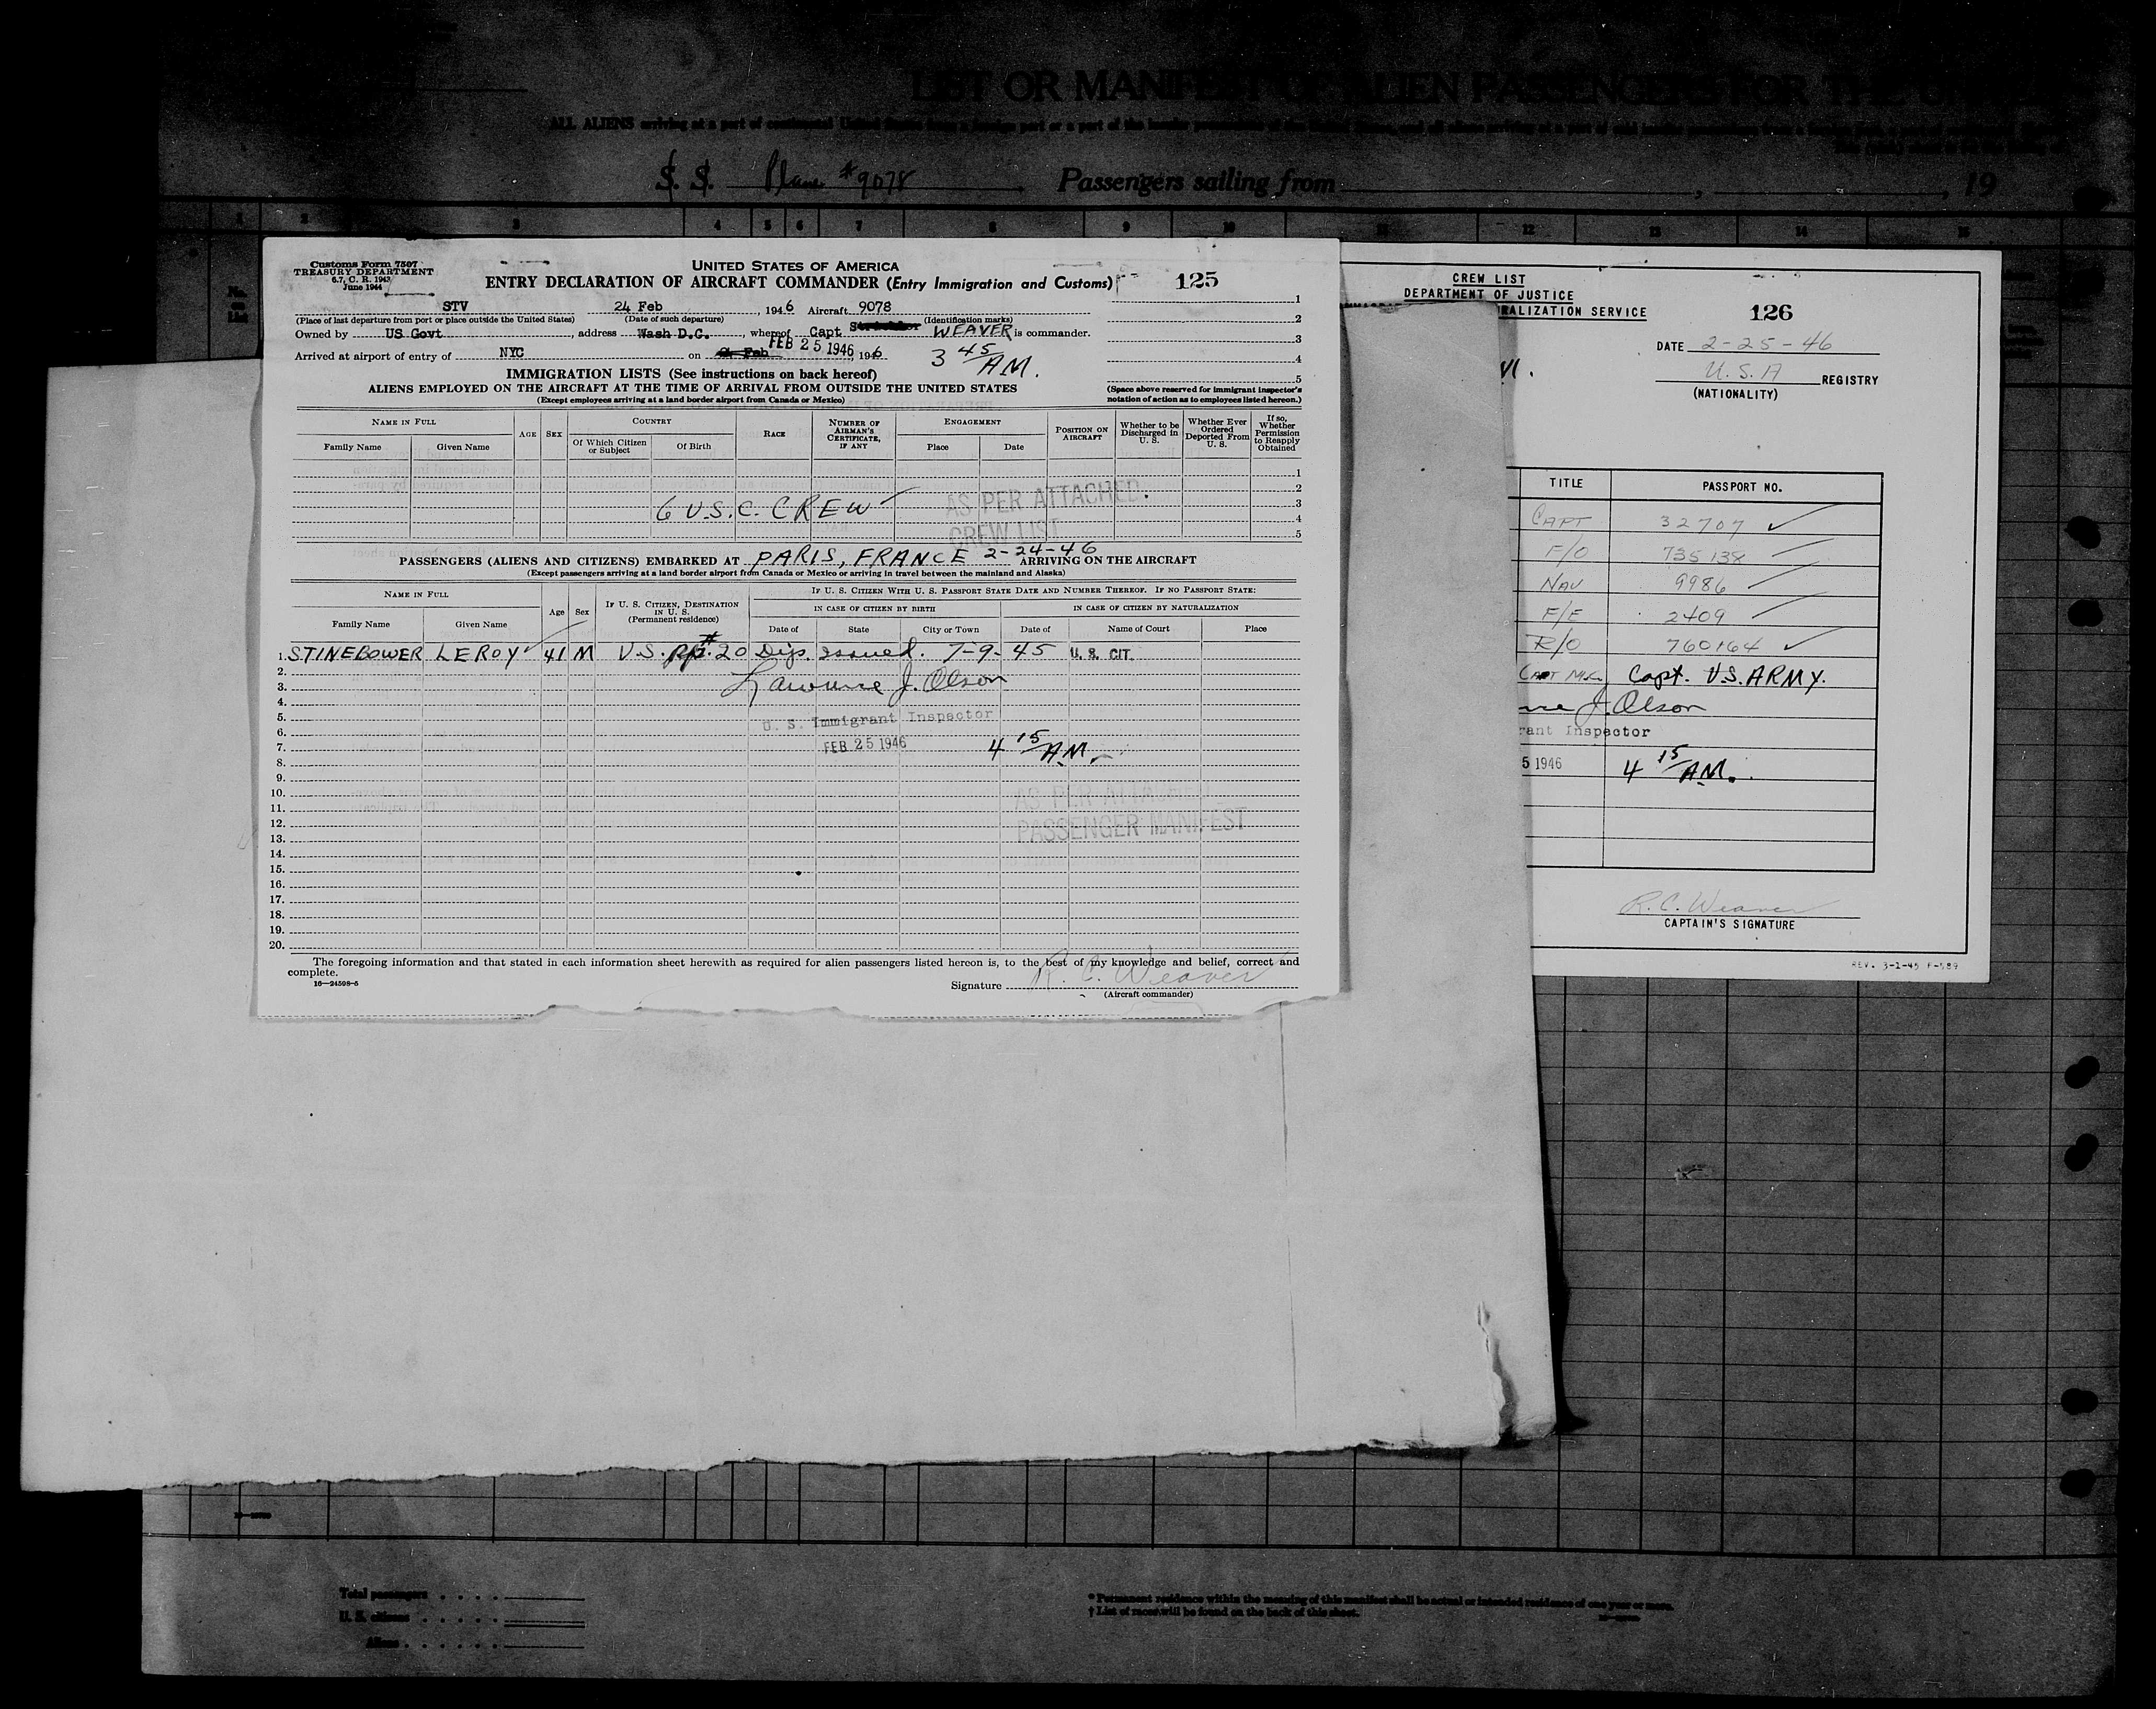 LIST OR MANIFEST OF ALIEN PASSENGERS FOR THE
ALL ALIENS arriving at a port of continental United States from a foreign port or a port of the insular possessions
S. S. Plane #9078 Passengers sailing from , , 19
1 2 3 4 5 6 7 8 9 10 11 12 13 14 15
Customs Form 7507
TREASURY DEPARTMENT
6.7, C. R. 1943
June 1944
UNITED STATES OF AMERICA
ENTRY DECLARATION OF AIRCRAFT COMMANDER (Entry Immigration and Customs)
125
STV 24 Feb , 1946 Aircraft 9078
(Place of last departure from port or place outside the United States) (Date of such departure) (Identification marks)
Owned by US Govt , address Wash D.C. , whereof Capt WEAVER is commander.
Arrived at airport of entry of NYC on FEB 25 1946, 1946 3 45/AM.
1
2
3
4
5
(Space above reserved for immigrant inspector's
notation of action as to employees listed hereon.)
IMMIGRATION LISTS (See instructions on back hereof)
ALIENS EMPLOYED ON THE AIRCRAFT AT THE TIME OF ARRIVAL FROM OUTSIDE THE UNITED STATES
(Except employees arriving at a land border airport from Canada or Mexico)
NAME IN FULL
Family Name Given Name
AGE SEX
COUNTRY
Of Which Citizen or Subject Of Birth
RACE
NUMBER OF AIRMAN'S CERTIFICATE, IF ANY
ENGAGEMENT
Place Date
POSITION ON AIRCRAFT
Whether to be Discharged in U. S.
Whether Ever Ordered Deported From U. S.
If so, Whether Permission to Reapply Obtained
1
2
3
4
5
6 U.S.C. CREW
AS PER ATTACHED
CREW LIST
PASSENGERS (ALIENS AND CITIZENS) EMBARKED AT PARIS, FRANCE 2-24-46 ARRIVING ON THE AIRCRAFT
(Except passengers arriving at a land border airport from Canada or Mexico or arriving in travel between the mainland and Alaska)
NAME IN FULL
Family Name Given Name
Age Sex
IF U. S. CITIZEN, DESTINATION IN U. S.
(Permanent residence)
IF U. S. CITIZEN WITH U. S. PASSPORT STATE DATE AND NUMBER THEREOF. IF NO PASSPORT STATE:
IN CASE OF CITIZEN BY BIRTH IN CASE OF CITIZEN BY NATURALIZATION
Date of State City or Town Date of Name of Court Place
1. STINEBOWER LEROY 41 M U.S. pp.# 20 Dip. issued. 7-9-45 U. S. CIT.
2.
3. Lawrence J. Olson
4.
5. U. S. Immigrant Inspector
6.
7. FEB 25 1946 4 15/AM.
8.
9.
10.
11. AS PER ATTACHED
12. PASSENGER MANIFEST
13.
14.
15.
16.
17.
18.
19.
20.
The foregoing information and that stated in each information sheet herewith as required for alien passengers listed hereon is, to the best of my knowledge and belief, correct and
complete.
16—24598-5
Signature R. C. Weaver
(Aircraft commander)
CREW LIST
DEPARTMENT OF JUSTICE
RALIZATION SERVICE
126
DATE 2-25-46
U.S.A REGISTRY
(NATIONALITY)
TITLE PASSPORT NO.
CAPT 32707
F/O 735138
NAV 9986
F/E 2409
R/O 760164
Capt. U.S. ARMY.
J. Olson
rant Inspector
5 1946 4 15/AM.
R. C. Weaver
CAPTAIN'S SIGNATURE
REV. 3-1-45 F-589
Total passengers
U. S. citizens
Aliens
* Permanent residence within the meaning of this manifest shall be actual or intended residence of one year or more.
† List of races will be found on the back of this sheet.